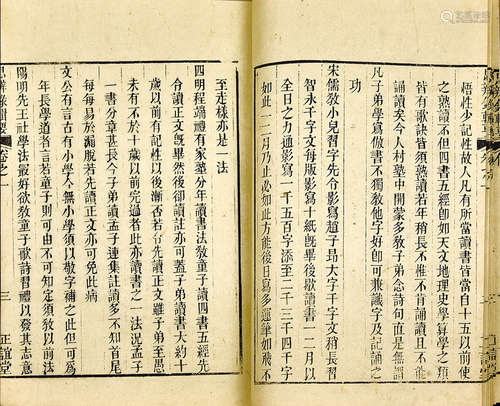 悟性少記性故人凡有所當讀書皆當自十五以前使
之熟讀不但四書五經即如天文地理史學算學之類
皆有歌訣皆須熟讀若年稍長不惟不肯誦讀且不能
誦讀矣今人村塾中開蒙多教子弟念詩句直是無謂
凡子弟學寫倣書不獨教他字好即可兼識字及記誦之
功
宋儒教小兒習字先令影寫趙子昂大字千字文稍長習
智永千字文每版影寫十紙既畢後歇讀書一二月以
全日之力通影寫一千五百字添至二千三千四千字
如此一二月乃止必如此方能後日寫多運筆如飛不
至走樣亦是一法
四明程端禮有家塾分年讀書法教童子讀四書五經先
令讀正文既畢然後卻讀註亦可蓋子弟讀書大約十
歲以前有記性以後漸否若令先讀正文雖子弟至愚
未有不於十歲以前完過者此亦讀書之一法況孟子
一書分章甚長今子弟讀孟子連集註讀多不知首尾
每每易於漏脫若先讀正文亦可免此病
文公有言古有小學今無小學須以敬字補之此但可為
年長學道者言若童子則可由不可知定須教以前法
陽明先王社學法最好欲教童子歌詩習禮以發其志意
思辨錄輯要 卷之一 三 正誼堂